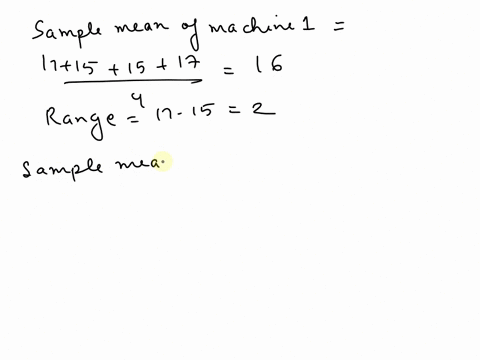 Sample mean of machine 1 =
17+15+15+17 = 16
4
Range = 17-15 = 2
Sample mea